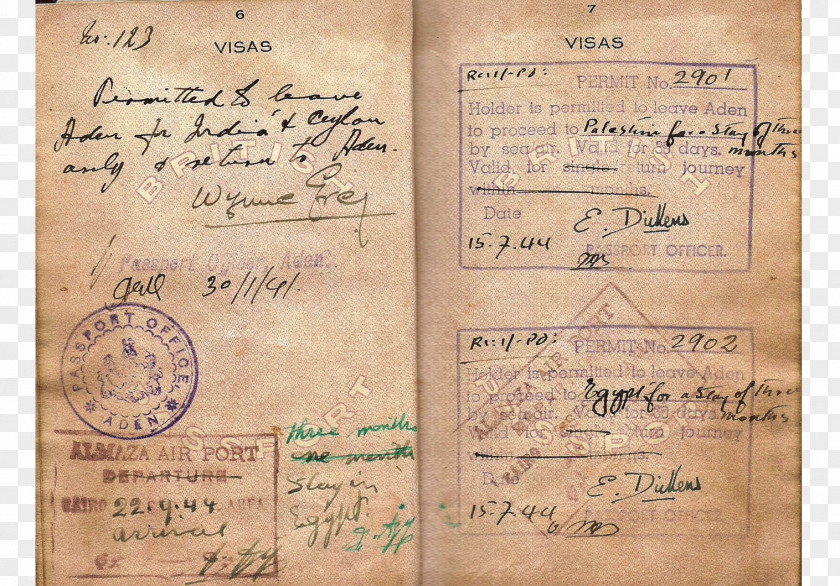 6
No: 123
VISAS
Permitted to leave
Aden for India & Ceylon
only & return to Aden.
BRITISH
Wynne Grey
Passport Officer, Aden.
30/1/41.
PASSPORT OFFICE
ADEN
ALMAZA AIR PORT
DEPARTURE
CAIRO 22.9.44 AREA
arrival
three months
one month
Stay in
Egypt.
7
VISAS
PERMIT No. 2901
Holder is permitted to leave Aden
to proceed to Palestine for a Stay of three
by sea/air. Valid for 38 days. months
Valid for single/return journey
within months.
Date E. Dickens
15.7.44 PASSPORT OFFICER.
BRITISH
ALMAZA AIR PORT
CAIRO
PERMIT No. 2902
Holder is permitted to leave Aden
to proceed to Egypt for a Stay of three
by sea/air. Valid for 38 days. months
Valid for single/return journey
within months.
E. Dickens
15.7.44 PASSPORT OFFICER